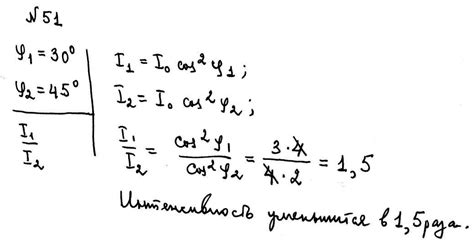 N51
φ₁ = 30°
φ₂ = 45°
I₁/I₂
I₁ = I₀ cos² φ₁;
I₂ = I₀ cos² φ₂;
I₁/I₂ = cos² φ₁ / cos² φ₂ = 3·4 / 4·2 = 1,5
Интенсивность уменьшится в 1,5 раза.